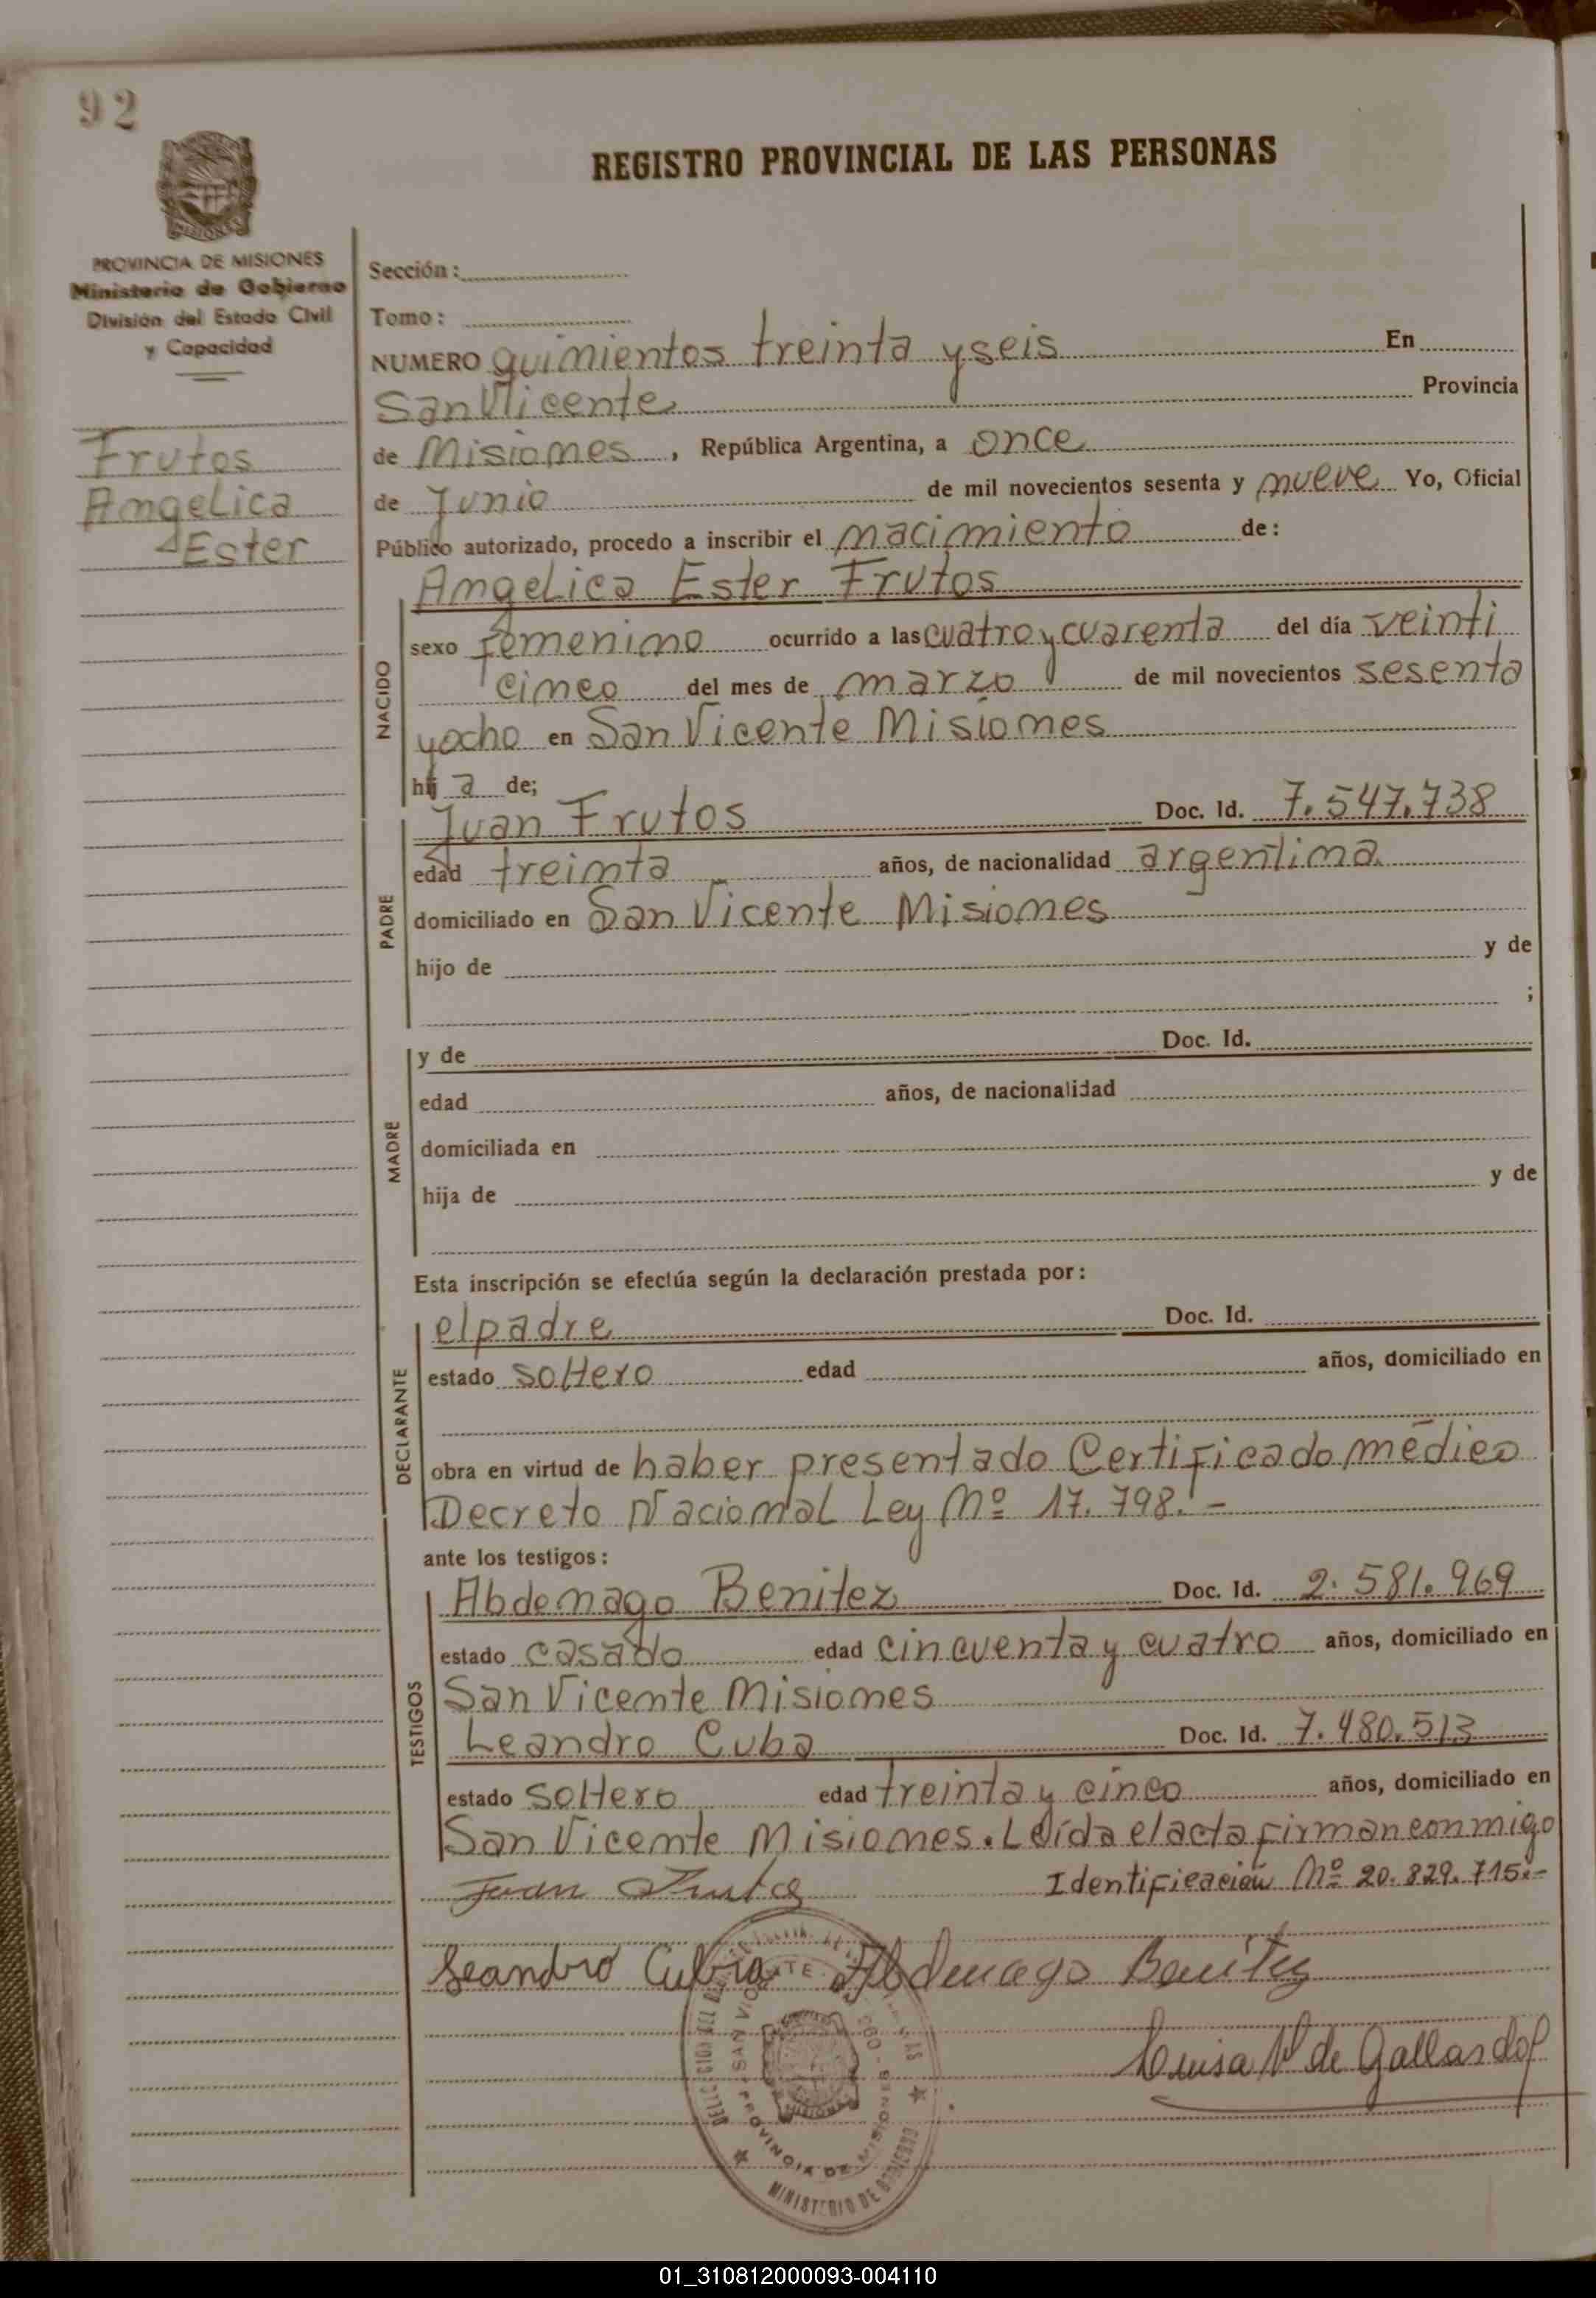 92
REGISTRO PROVINCIAL DE LAS PERSONAS
MISIONES
PROVINCIA DE MISIONES
Ministerio de Gobierno
División del Estado Civil
y Capacidad
Frutos
Angelica
Ester
Sección:
Tomo:
NUMERO quinientos treinta y seis En
San Vicente Provincia
de Misiones, República Argentina, a once
de Junio de mil novecientos sesenta y nueve Yo, Oficial
Público autorizado, procedo a inscribir el nacimiento de:
NACIDO
Angelica Ester Frutos
sexo femenino ocurrido a las cuatro y cuarenta del día veinti
cinco del mes de marzo de mil novecientos sesenta
y ocho en San Vicente Misiones
hij a de;
PADRE
Juan Frutos Doc. Id. 7.547.738
edad treinta años, de nacionalidad argentina
domiciliado en San Vicente Misiones
hijo de y de
;
MADRE
y de Doc. Id.
edad años, de nacionalidad
domiciliada en
hija de y de
Esta inscripción se efectúa según la declaración prestada por:
DECLARANTE
el padre Doc. Id.
estado soltero edad años, domiciliado en
obra en virtud de haber presentado Certificado médico
Decreto Nacional Ley Nº 17.798.-
ante los testigos:
TESTIGOS
Abdenago Benitez Doc. Id. 2.581.969
estado casado edad cincuenta y cuatro años, domiciliado en
San Vicente Misiones
Leandro Cuba Doc. Id. 7.480.513
estado soltero edad treinta y cinco años, domiciliado en
San Vicente Misiones. Leída el acta firman conmigo
Juan Frutos Identificación Nº 20.829.715.-
Leandro Cubia Abdenago Benítez
Luisa V de Gallardo
SAN VICENTE
PROVINCIA DE MISIONES
MINISTERIO DE GOBIERNO
01_310812000093-004110